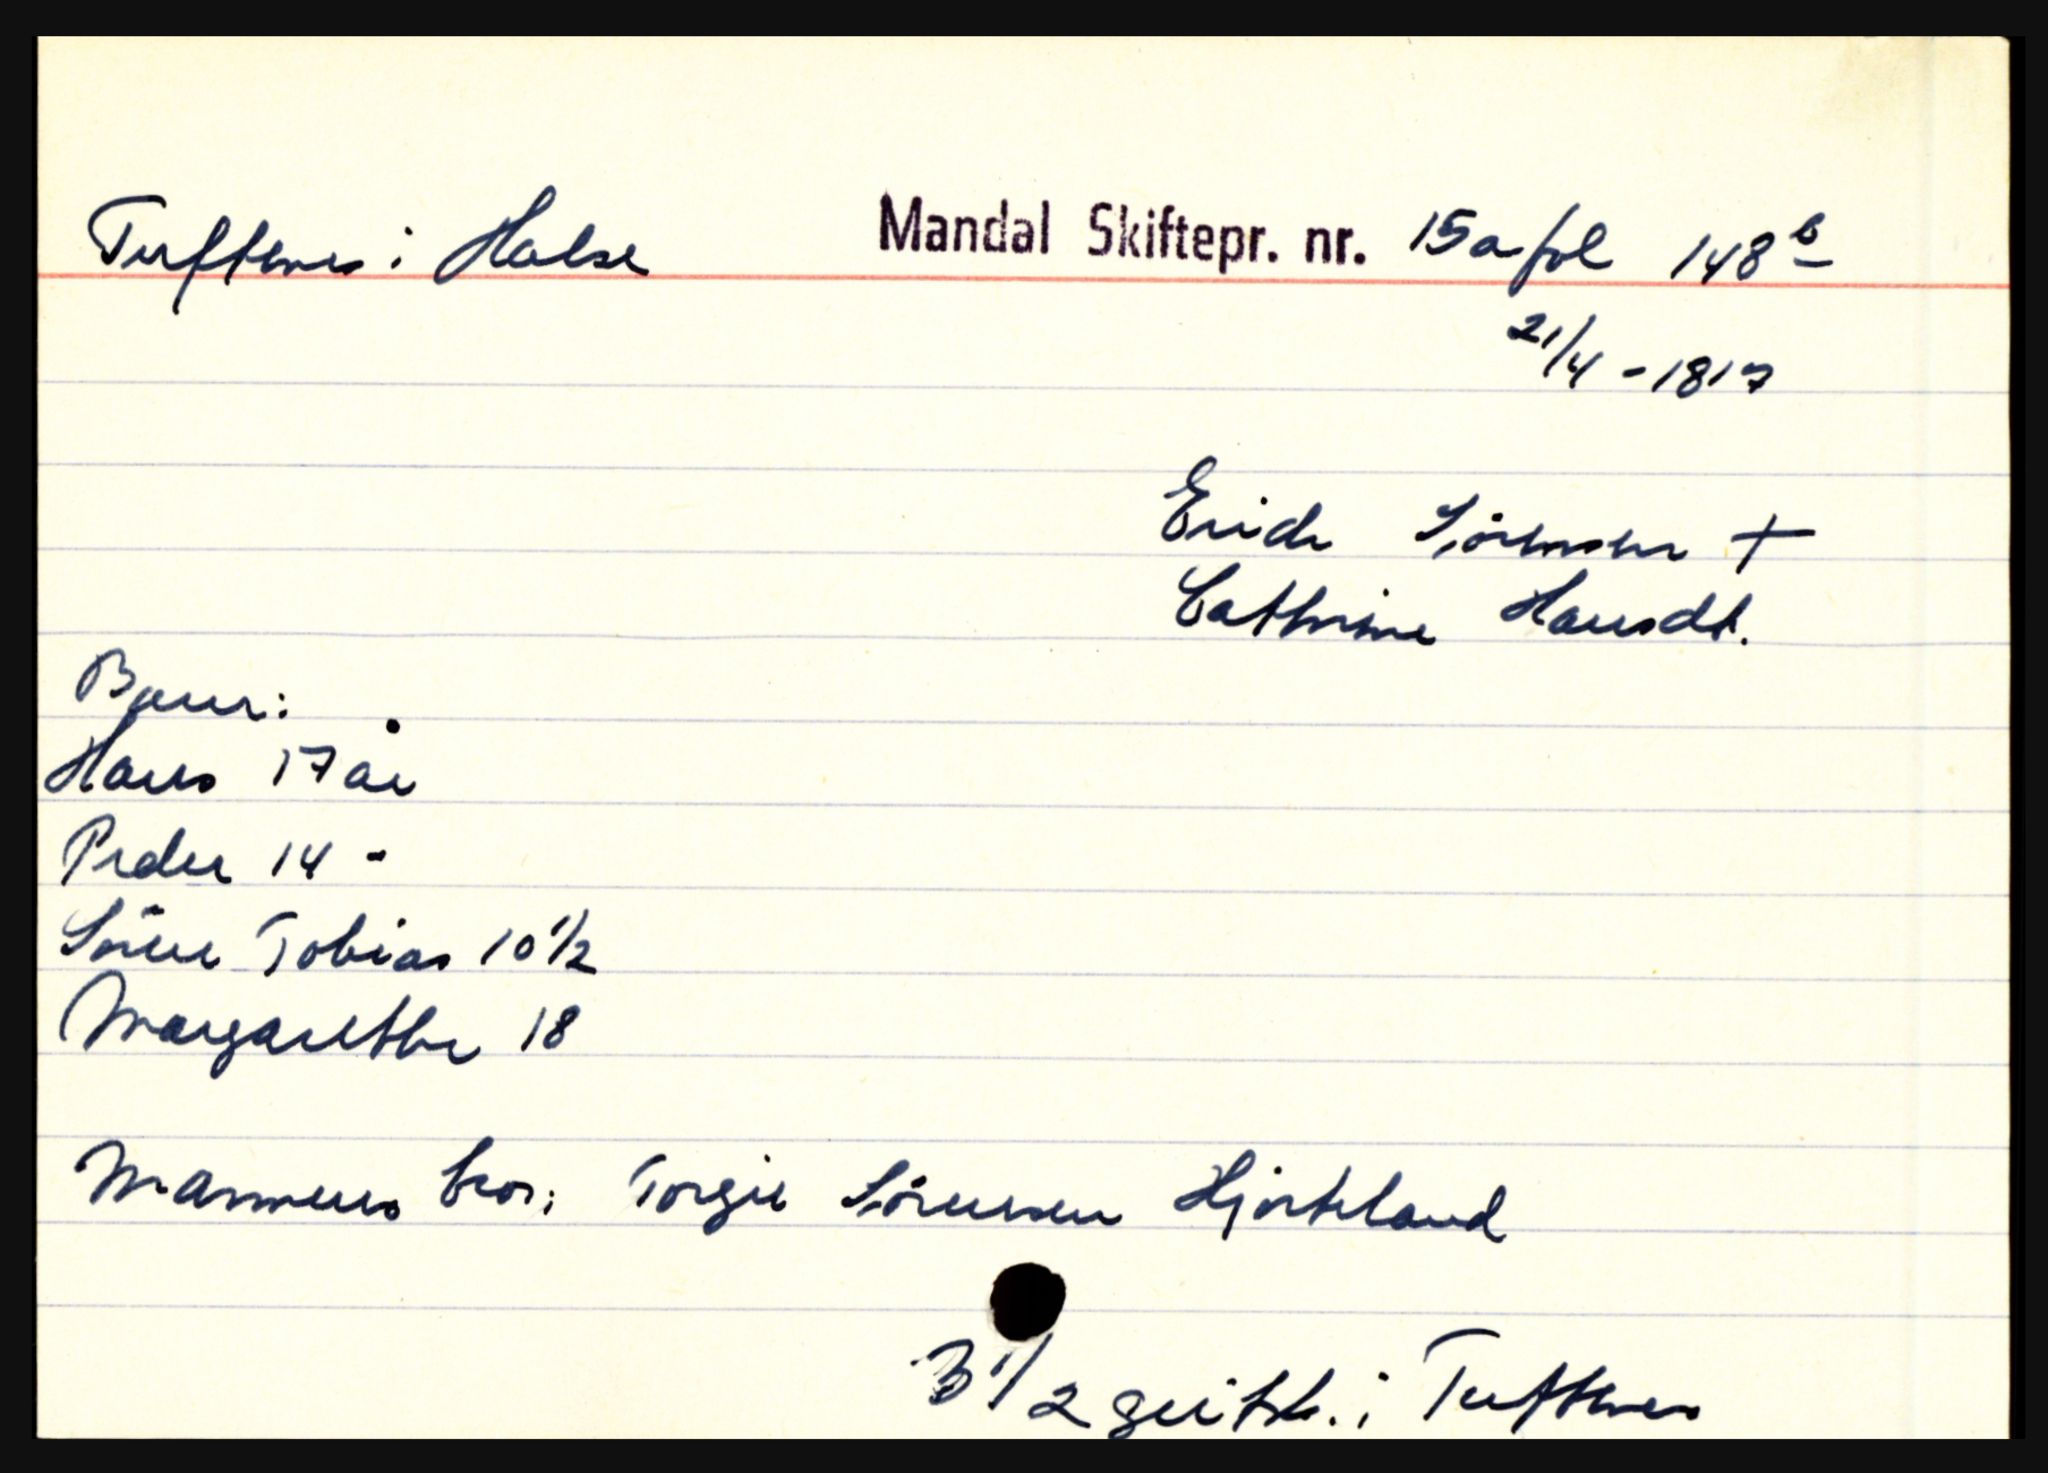 Tuftenes i Halse Mandal Skiftepr. nr. 15a fol 148 b
21/4 - 1817
Erich Sörensen +
Cathrine Hansdt.
Barn:
Hans 17 år
Peder 14 -
Sören Tobias 10 1/2
Margarethe 18
Mannens bror: Torgie Sörensen Hjorteland
3 1/2 geitsk. i Tuftenes